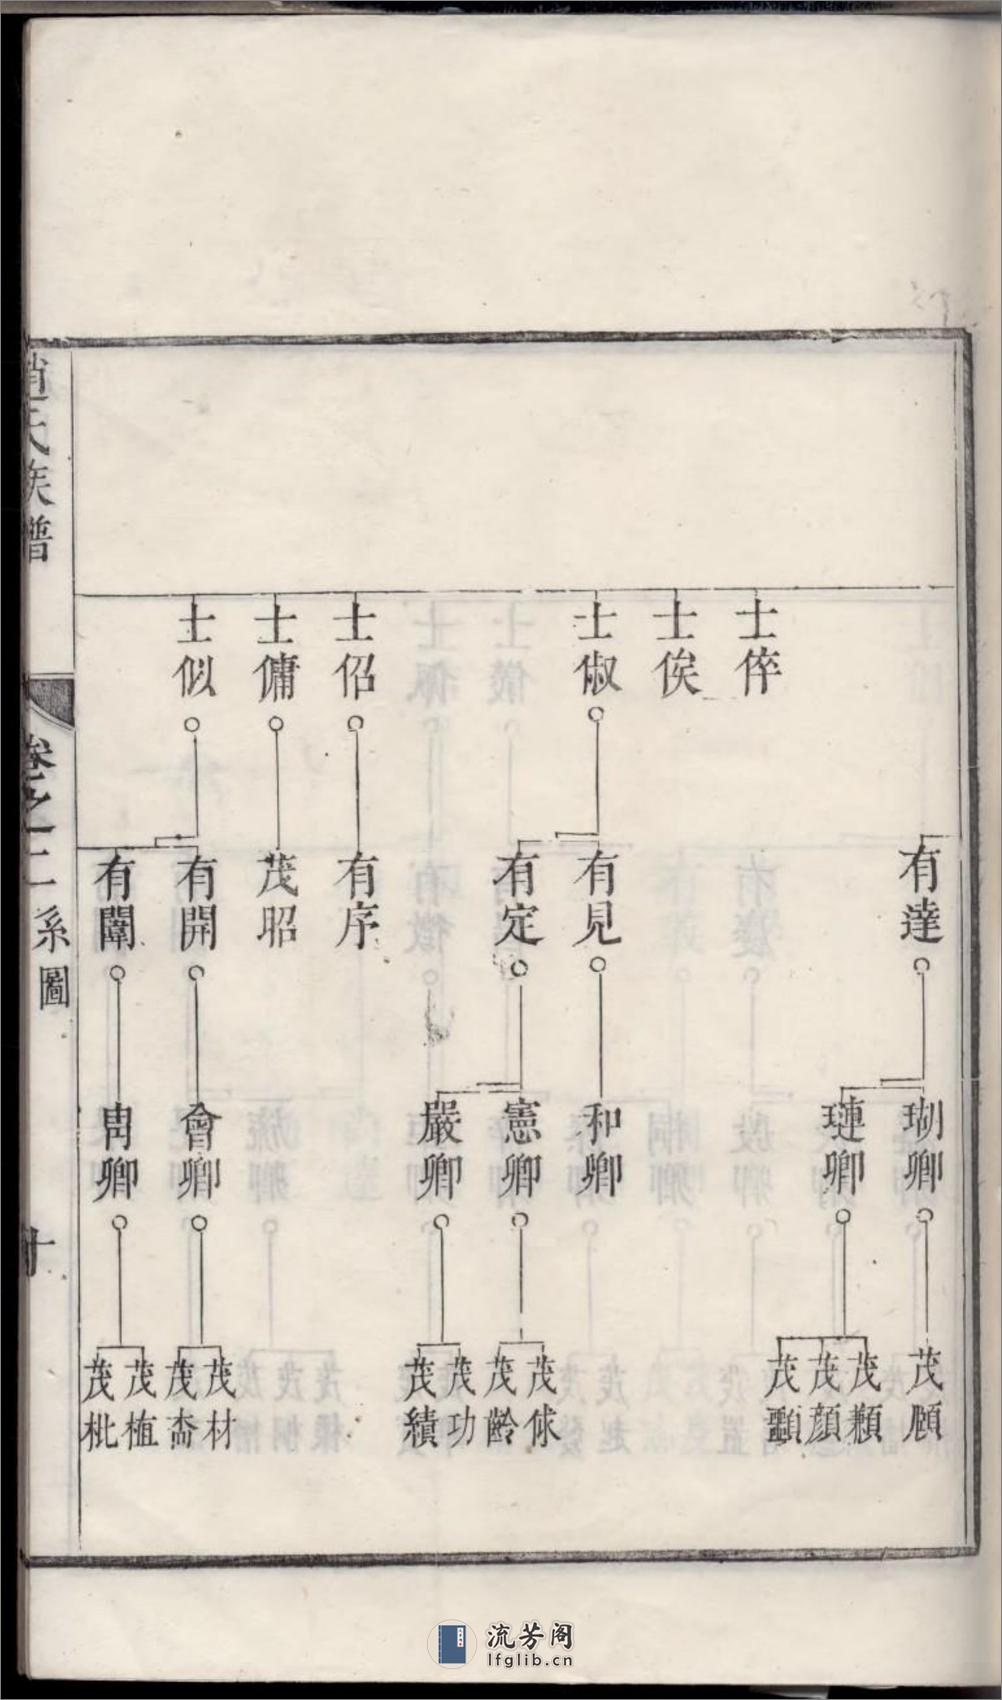 士倅
士俟
士俶
士佋
士傭
士似
有達
有見
有定
有序
茂昭
有開
有闈
瑚卿
璉卿
和卿
憲卿
嚴卿
會卿
冑卿
茂頎
茂顏
茂俅
茂齡
茂功
茂績
茂材
茂植
茂枇
趙氏族譜
卷之二
系圖
十
流芳阁
lfglib.cn